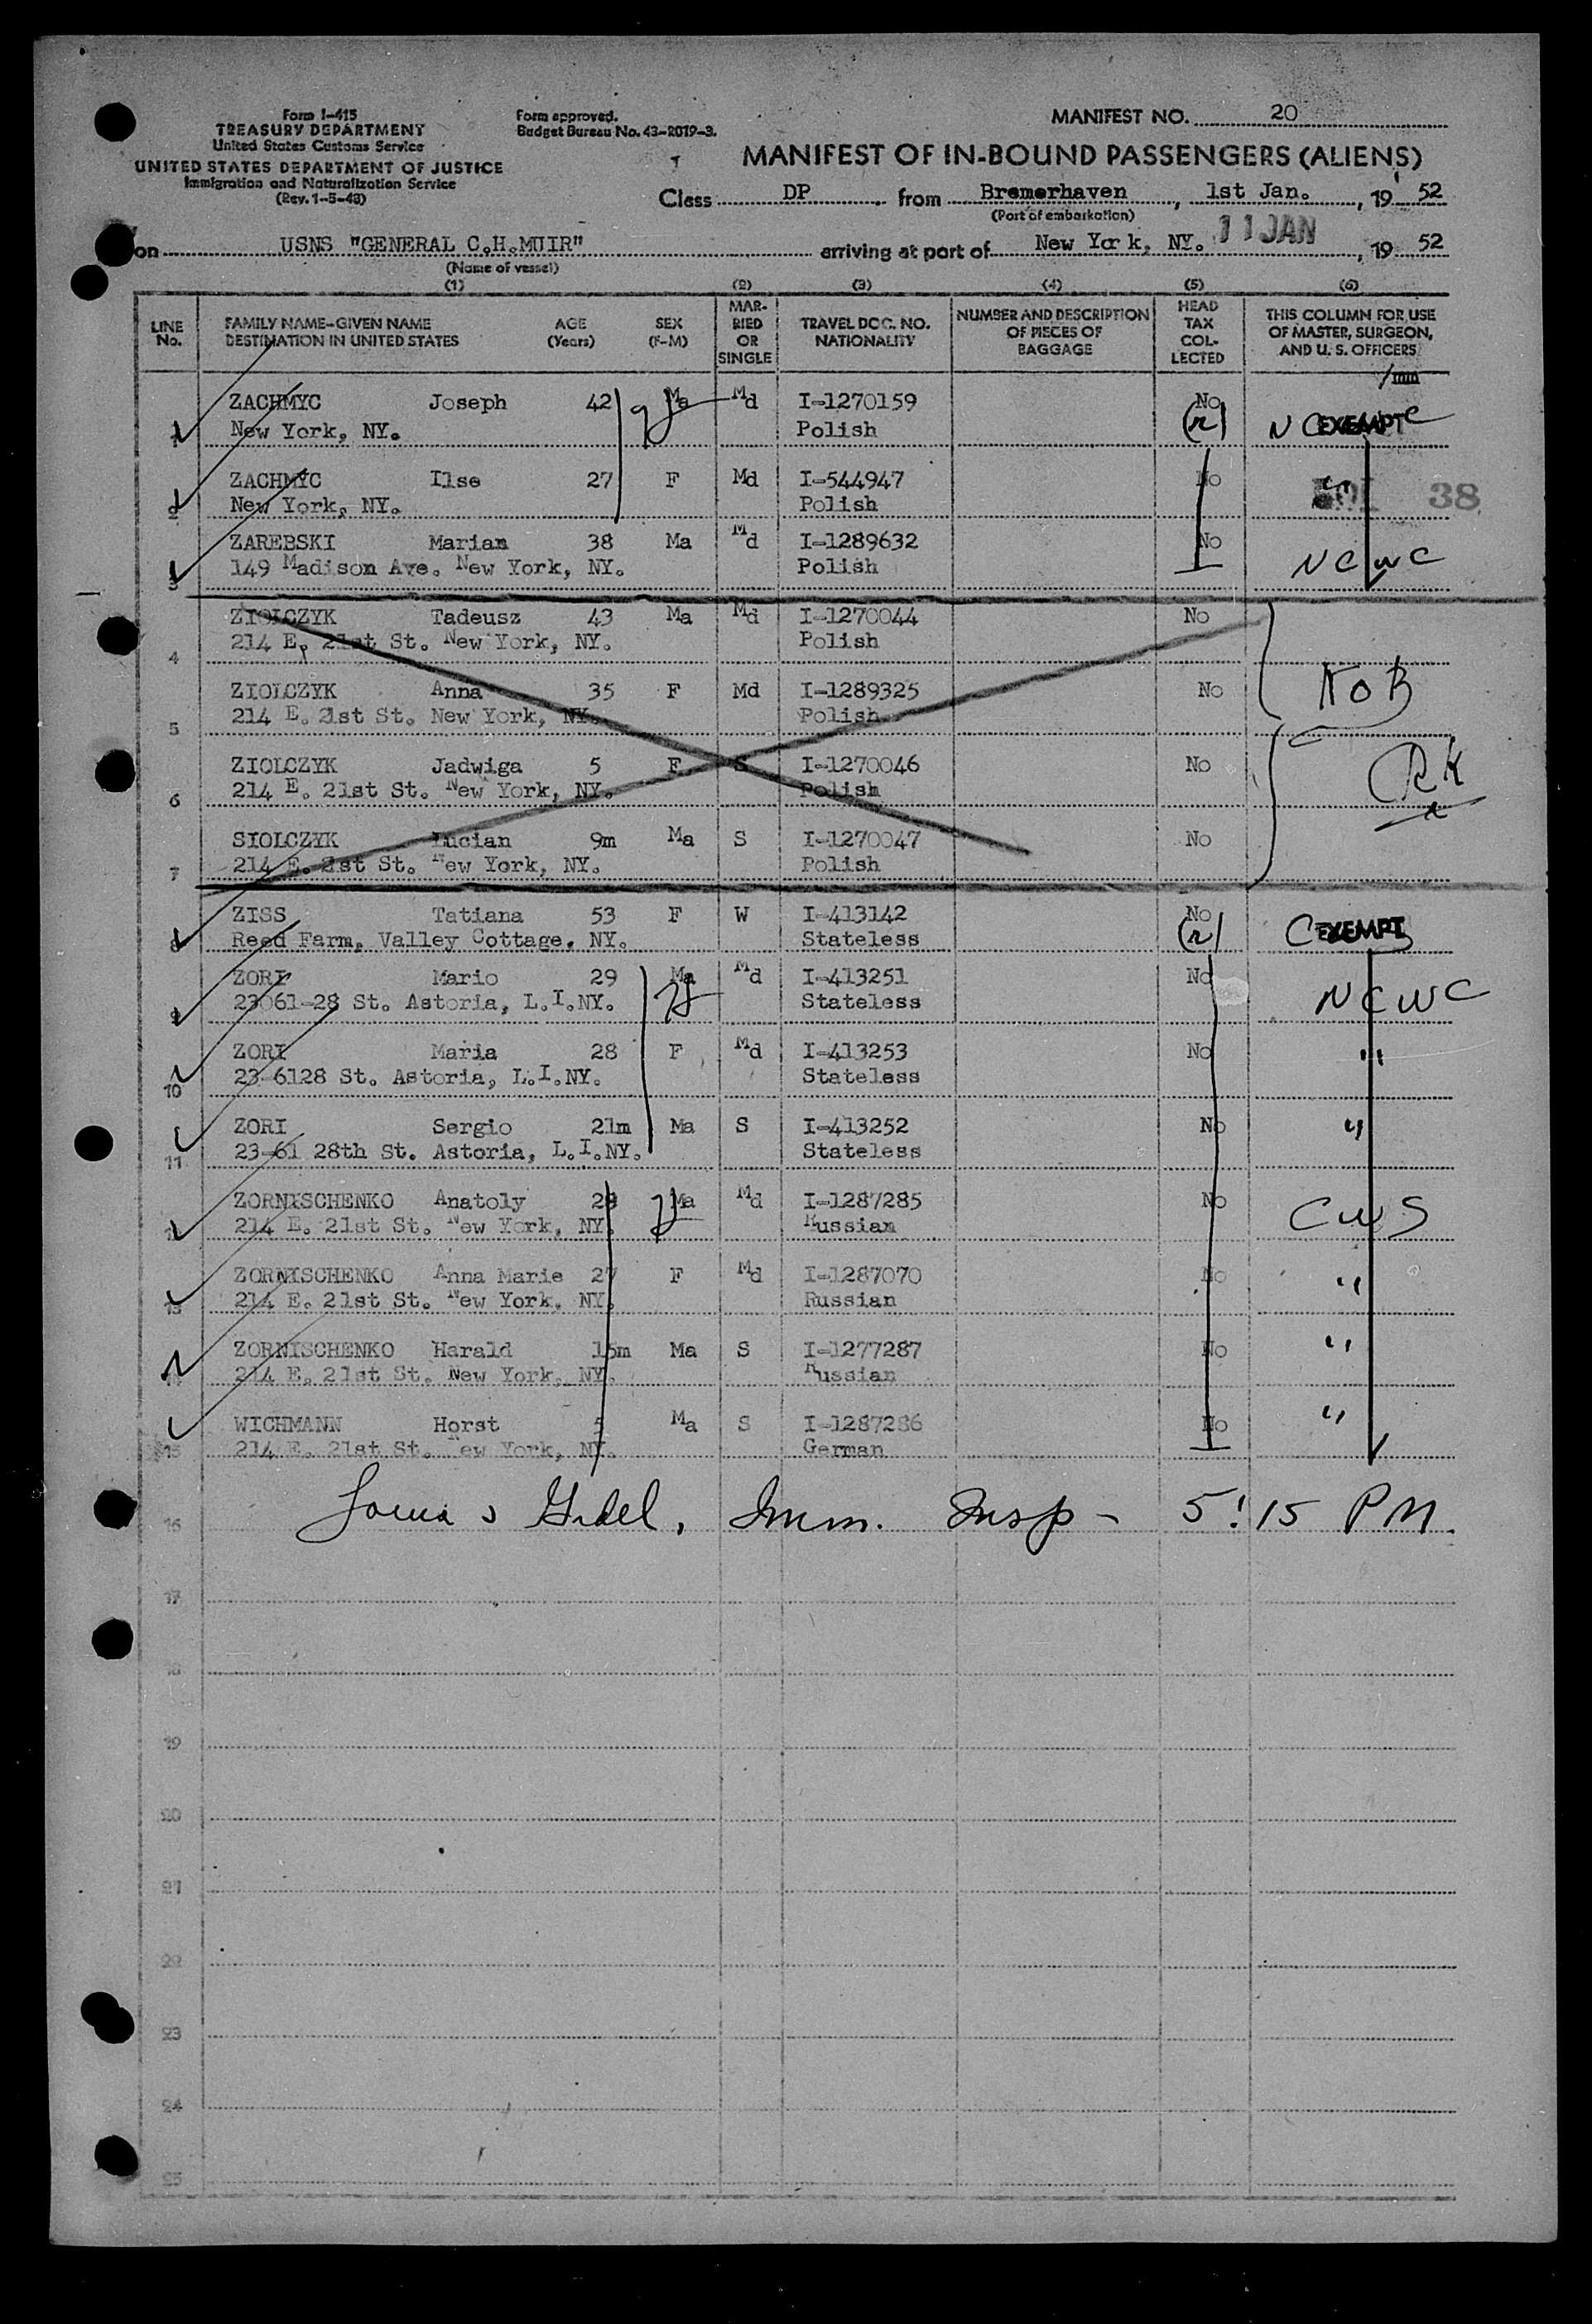 Form I-415
TREASURY DEPARTMENT
United States Customs Service
UNITED STATES DEPARTMENT OF JUSTICE
Immigration and Naturalization Service
(Rev. 1-5-48)
Form approved.
Budget Bureau No. 43-2019-3.
MANIFEST NO. 20
MANIFEST OF IN-BOUND PASSENGERS (ALIENS)
Class DP from Bremerhaven, 1st Jan., 19 52
(Port of embarkation)
on USNS "GENERAL C.H.MUIR" arriving at port of New York, NY. 11 JAN, 19 52
(Name of vessel)
(1) (2) (3) (4) (5) (6)
LINE No. FAMILY NAME-GIVEN NAME DESTINATION IN UNITED STATES AGE (Years) SEX (F-M) MARRIED OR SINGLE TRAVEL DOC. NO. NATIONALITY NUMBER AND DESCRIPTION OF PIECES OF BAGGAGE HEAD TAX COLLECTED THIS COLUMN FOR USE OF MASTER, SURGEON, AND U. S. OFFICERS
/mm
ZACHMYC Joseph 42 Ma Md I-1270159 No
1 New York, NY. Polish (r) EXEMPT
ZACHMYC Ilse 27 F Md I-544947 No "
2 New York, NY. Polish 38
ZAREBSKI Marian 38 Ma Md I-1289632 No
3 149 Madison Ave. New York, NY. Polish NCWC
ZIOLCZYK Tadeusz 43 Ma Md I-1270044 No
4 214 E. 21st St. New York, NY. Polish
ZIOLCZYK Anna 35 F Md I-1289325 No NOB
5 214 E. 21st St. New York, NY. Polish
ZIOLCZYK Jadwiga 5 F S I-1270046 No RK
6 214 E. 21st St. New York, NY. Polish
SIOLCZYK Lucian 9m Ma S I-1270047 No
7 214 E. 21st St. New York, NY. Polish
ZISS Tatiana 53 F W I-413142 No
8 Reed Farm, Valley Cottage, NY. Stateless (r) EXEMPT
ZORI Mario 29 Ma Md I-413251 No
9 23061-28 St. Astoria, L.I.NY. Stateless NCWC
ZORI Maria 28 F Md I-413253 No "
10 23-6128 St. Astoria, L.I.NY. Stateless
ZORI Sergio 21m Ma S I-413252 No "
11 23-61 28th St. Astoria, L.I.NY. Stateless
ZORNISCHENKO Anatoly 28 Ma Md I-1287285 No CWS
12 214 E. 21st St. New York, NY. Russian
ZORNISCHENKO Anna Marie 27 F Md I-1287070 No "
13 214 E. 21st St. New York, NY. Russian
ZORNISCHENKO Harald 15m Ma S I-1277287 No "
14 214 E. 21st St. New York, NY. Russian
WICHMANN Horst 5 Ma S I-1287286 No "
15 214 E. 21st St. New York, NY. German
16 Imm. Insp - 5:15 PM.
17
18
19
20
21
22
23
24
25